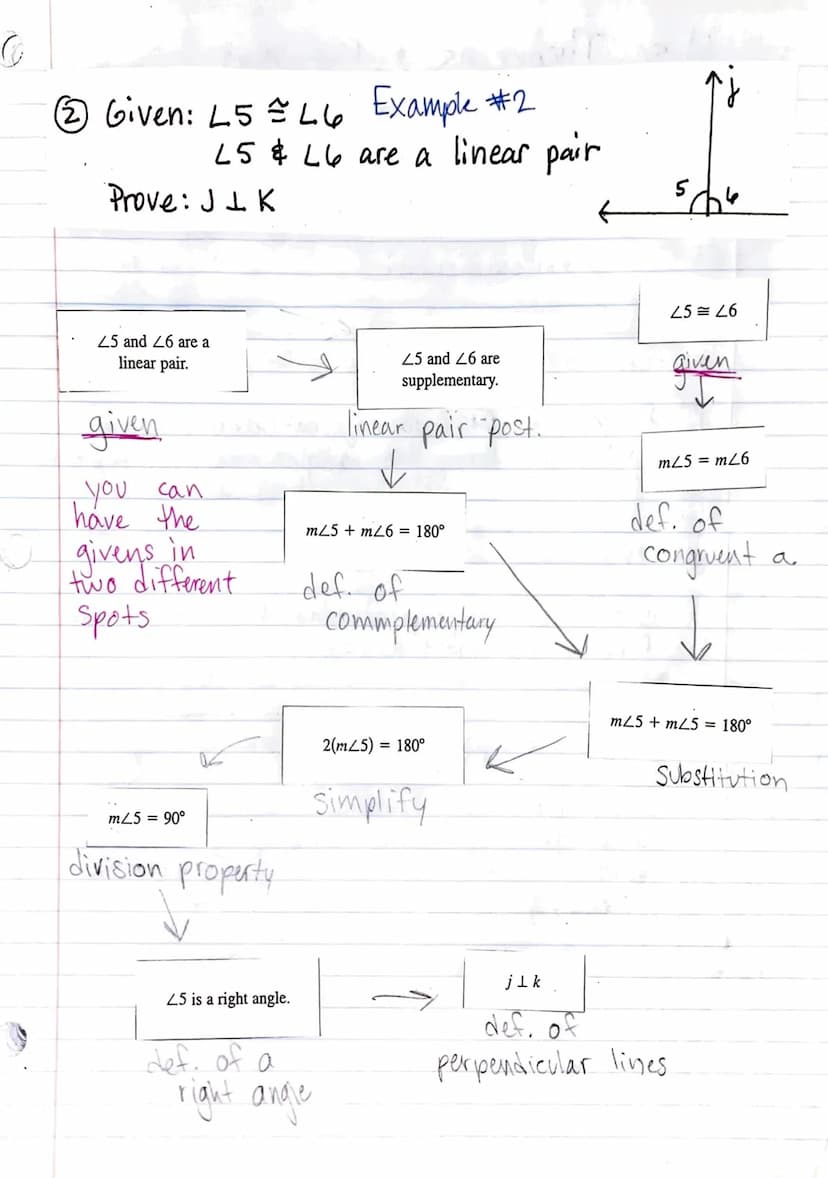 ② Given: ∠5 ≅ ∠6 Example #2
∠5 & ∠6 are a linear pair
Prove: J ⊥ K
j
5 6
∠5 and ∠6 are a
linear pair.
given
you can
have the
givens in
two different
spots
∠5 and ∠6 are
supplementary.
linear pair post.
m∠5 + m∠6 = 180°
def. of
commplementary
∠5 ≅ ∠6
given
m∠5 = m∠6
def. of
congruent a
m∠5 + m∠5 = 180°
substitution
2(m∠5) = 180°
simplify
m∠5 = 90°
division property
∠5 is a right angle.
def. of a
right angle
j ⊥ k
def. of
perpendicular lines